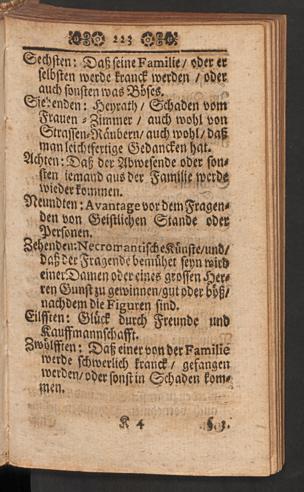 223
Sechsten: Daß seine Familie / oder er
selbsten werde kranck werden / oder
auch sonsten was Böses.
Siebenden: Heyrath / Schaden vom
Frauen-Zimmer / auch wohl von
Strassen-Räubern / auch wohl / daß
man leichtfertige Gedancken hat.
Achten: Daß der Abwesende oder son-
sten iemand aus der Familie werde
wieder kommen.
Neundten: Avantage vor dem Fragen-
den von Geistlichen Stande oder
Personen.
Zehenden: Necromantische Künste / und /
daß der Fragende bemühet seyn wird
einer Damen oder eines grossen Her-
ren Gunst zu gewinnen / gut oder böß /
nachdem die Figuren sind.
Eilfften: Glück durch Freunde und
Kauffmannschafft.
Zwölfften: Daß einer von der Familie
werde schwerlich kranck / gefangen
werden / oder sonst in Schaden kom-
men.
K 4